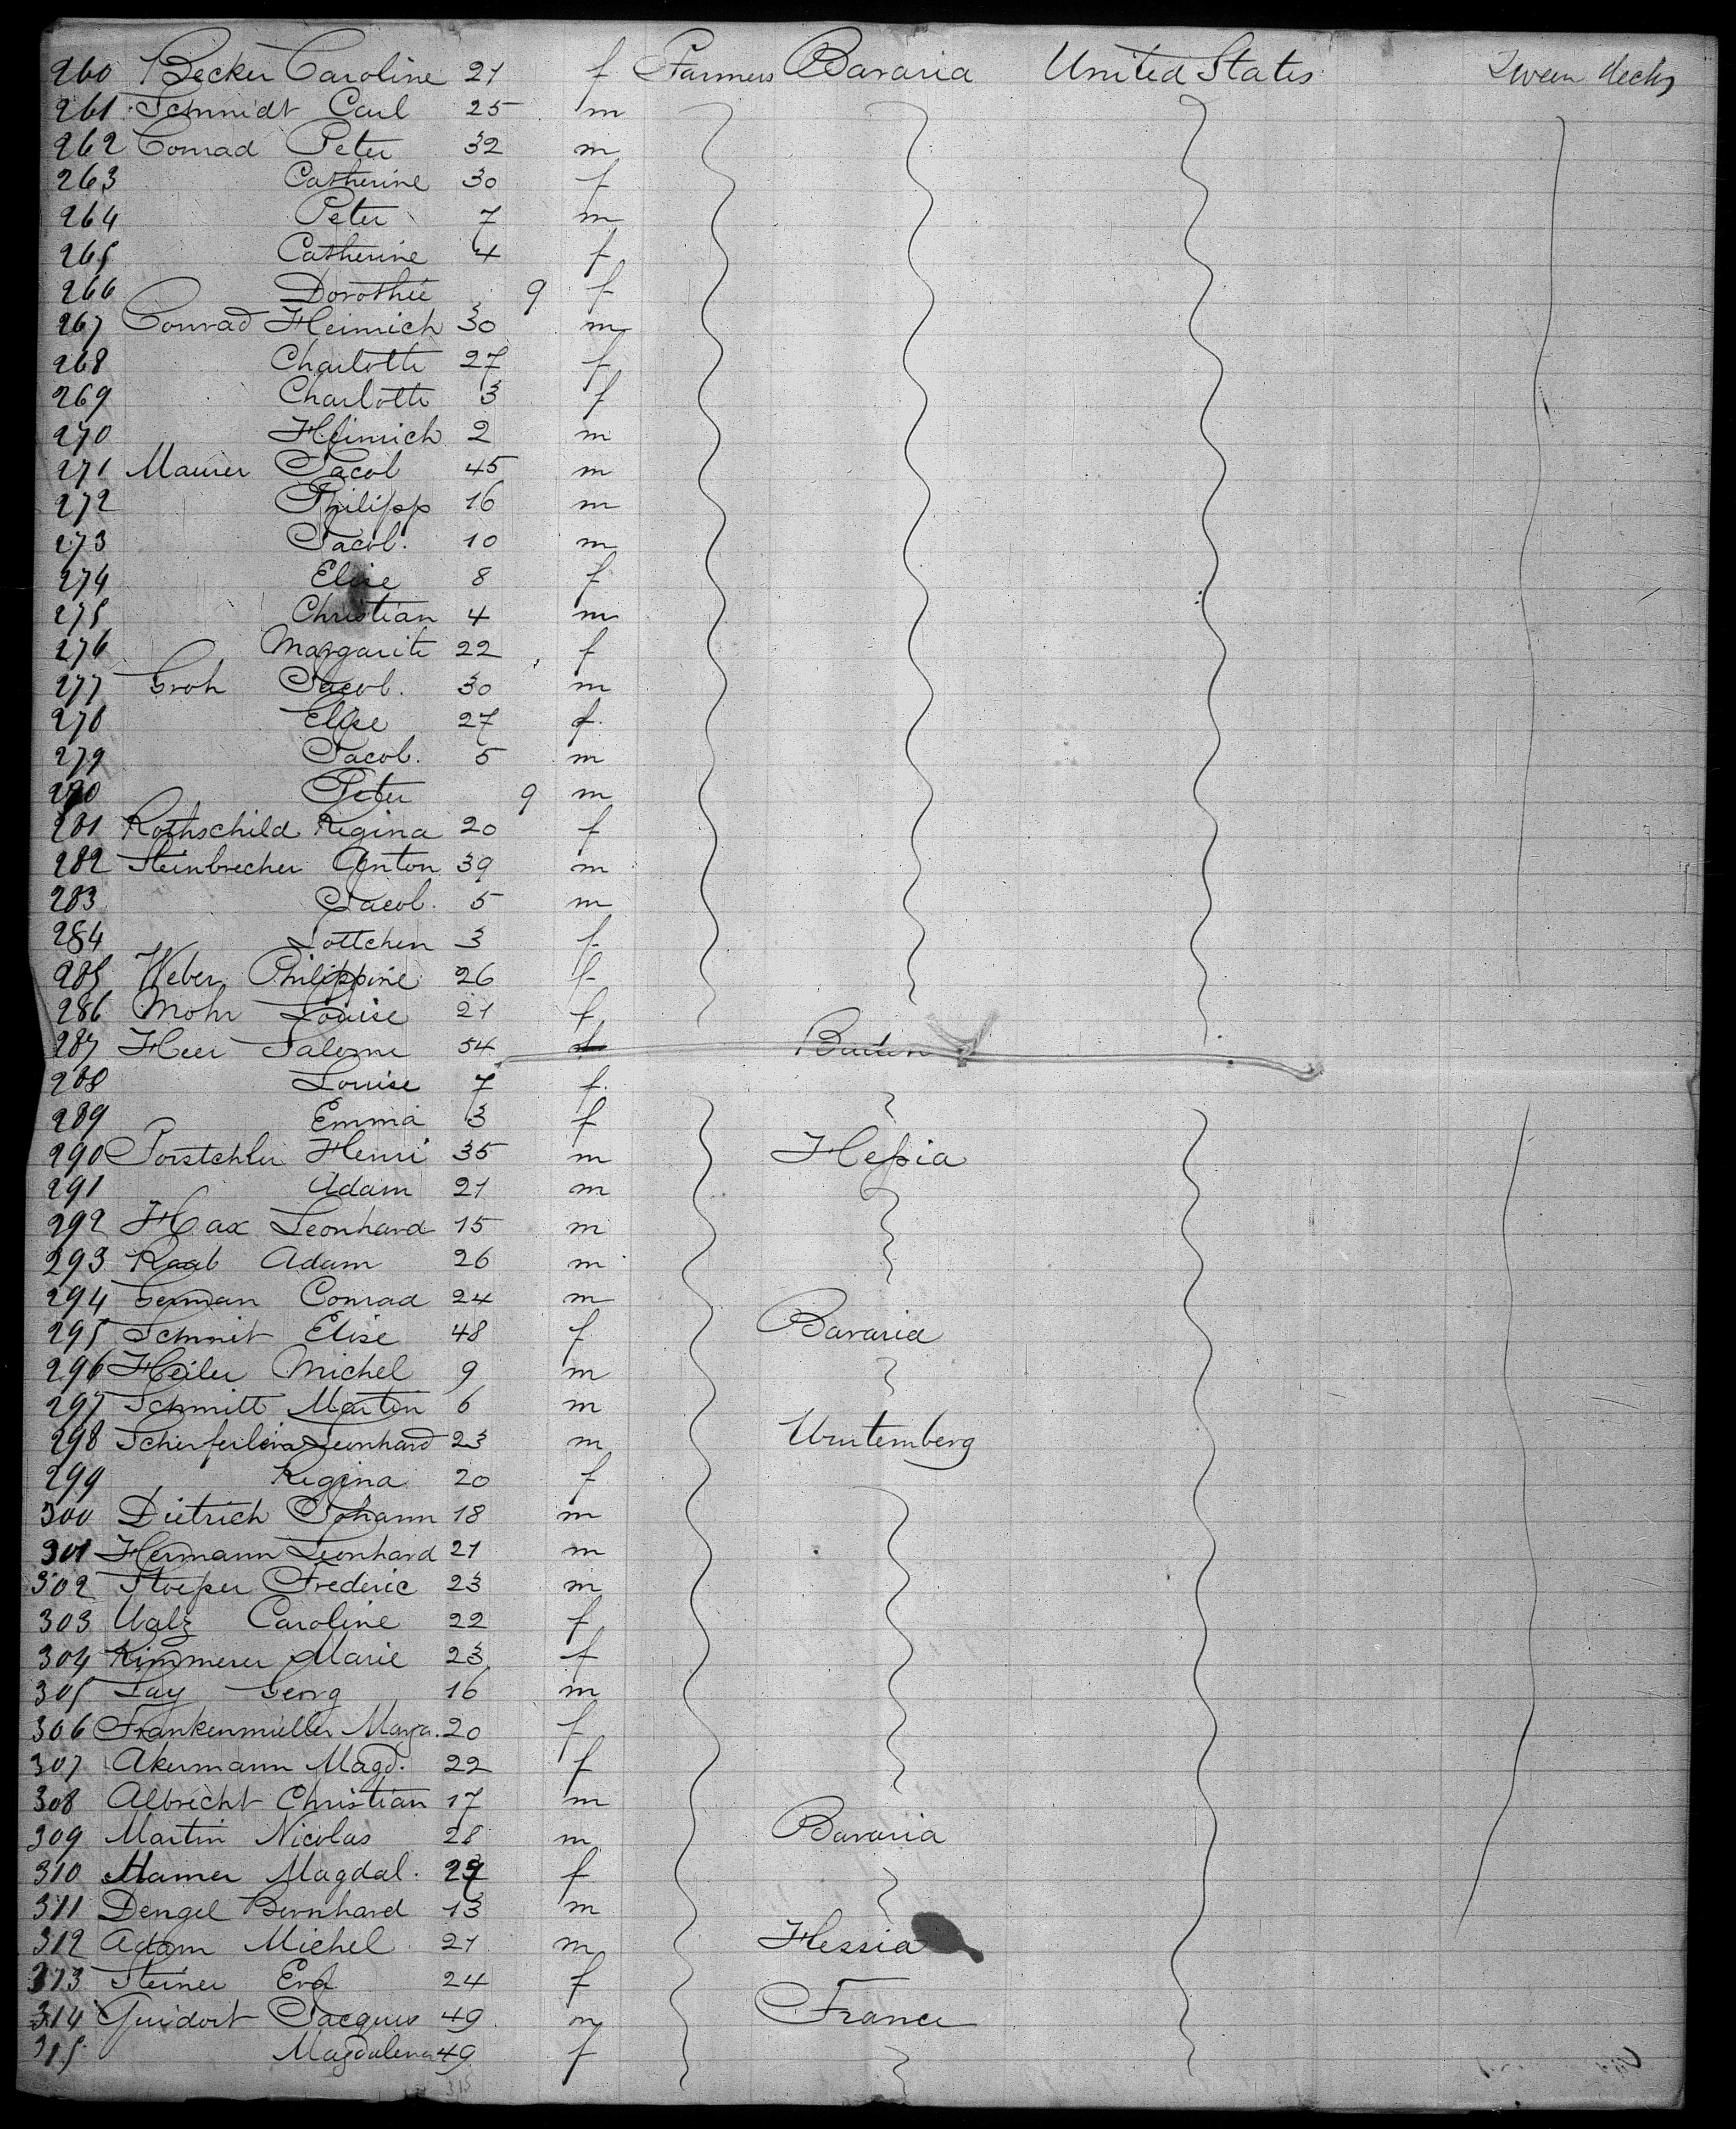 260 Becker Caroline 21 f Farmers Bavaria United States Tween decks
261 Schmidt Carl 25 m
262 Conrad Peter 32 m
263 Catherine 30 f
264 Peter 7 m
265 Catherine 4 f
266 Dorothée 9 f
267 Conrad Heinrich 30 m
268 Charlotte 27 f
269 Charlotte 3 f
270 Heinrich 2 m
271 Maurer Jacob 45 m
272 Philipp 16 m
273 Jacob. 10 m
274 Elise 8 f
275 Christian 4 m
276 Margarite 22 f
277 Groh Jacob. 30 m
278 Elise 27 f.
279 Jacob. 5 m
280 Peter 9 m
281 Rothschild Regina 20 f
282 Steinbrecher Anton 39 m
283 Jacob. 5 m
284 Lottchen 3 f
285 Weber Philippine 26 f
286 Mohr Louise 21 f
287 Heer Salome 54 f Baden
288 Louise 7 f.
289 Emma 3 f
290 Henri 35 m Hessia
291 Adam 21 m
292 Hax Leonhard 15 m
293 Raab Adam 26 m
294 German Conrad 24 m
295 Schmit Elise 48 f Bavaria
296 Heiler Michel 9 m
297 Schmitt Martin 6 m
298 Leonhard 23 m Wurtemberg
299 Regina 20 f
300 Dietrich Johann 18 m
301 Hermann Leonhard 21 m
302 Stoesser Frederic 23 m
303 Walz Caroline 22 f
304 Kimmerer Marie 23 f
305 Lay Georg 16 m
306 Frankenmüller Marga. 20 f
307 Akermann Magd. 22 f
308 Albrecht Christian 17 m
309 Martin Nicolas 28 m Bavaria
310 Mamer Magdal. f
311 Dengel Bernhard 13 m
312 Adam Michel 21 m Hessia
313 Steiner Eva 24 f
314 Guidort Jacques 49 m France
315 Magdalena 49 f
315